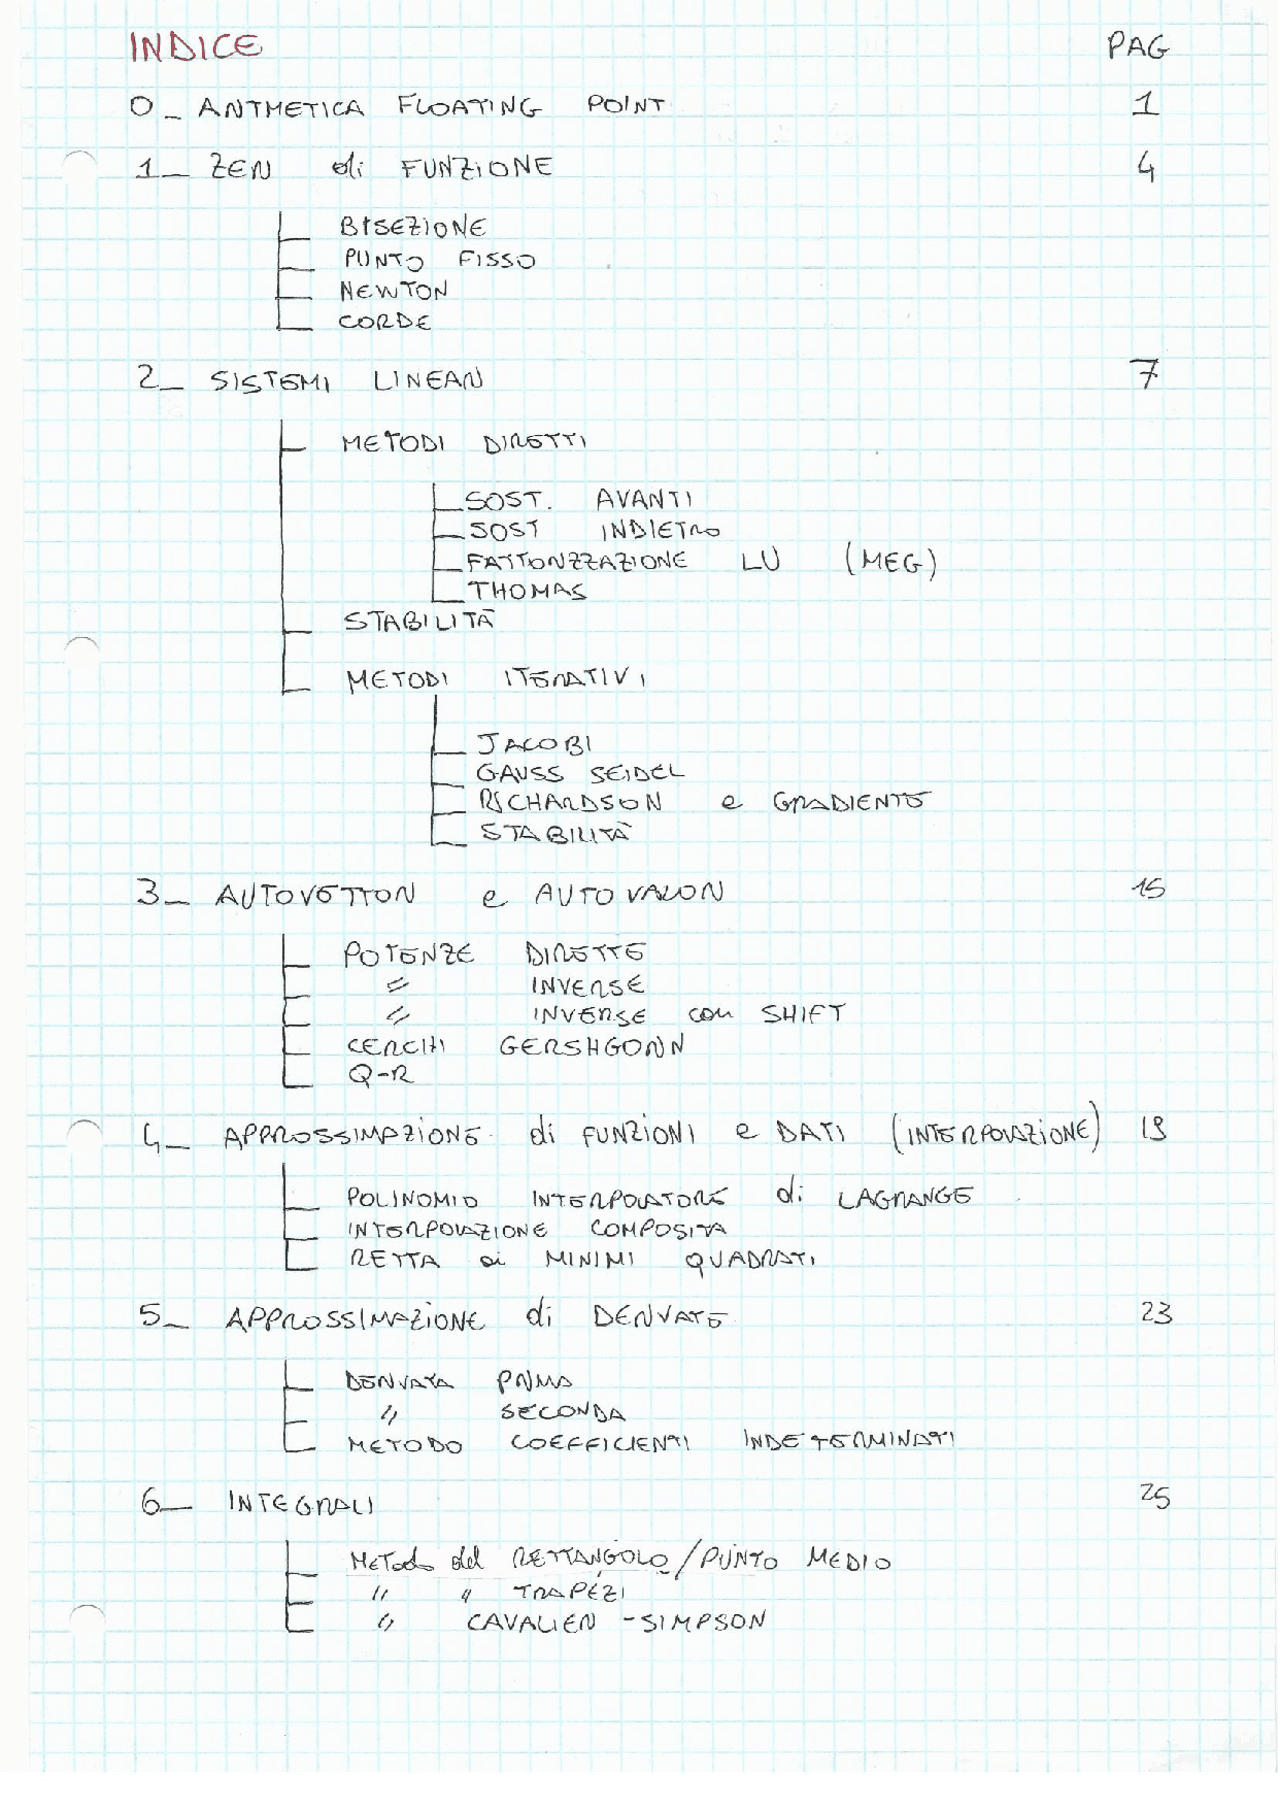 INDICE PAG
0_ ARITMETICA FLOATING POINT 1
1_ ZERI di FUNZIONE 4
BISEZIONE
PUNTO FISSO
NEWTON
CORDE
2_ SISTEMI LINEARI 7
METODI DIRETTI
SOST. AVANTI
SOST INDIETRO
FATTORIZZAZIONE LU (MEG)
THOMAS
STABILITÀ
METODI ITERATIVI
JACOBI
GAUSS SEIDEL
RICHARDSON e GRADIENTE
STABILITÀ
3_ AUTOVETTORI e AUTOVALORI 15
POTENZE DIRETTE
" INVERSE
" INVERSE con SHIFT
CERCHI GERSHGORIN
Q-R
4_ APPROSSIMAZIONE di FUNZIONI e DATI (INTERPOLAZIONE) 19
POLINOMIO INTERPOLATORE di LAGRANGE
INTERPOLAZIONE COMPOSITA
RETTA ai MINIMI QUADRATI
5_ APPROSSIMAZIONE di DERIVATE 23
DERIVATA PRIMA
" SECONDA
METODO COEFFICIENTI INDETERMINATI
6_ INTEGRALI 25
Metodo del RETTANGOLO/PUNTO MEDIO
" " TRAPEZI
" CAVALIERI-SIMPSON